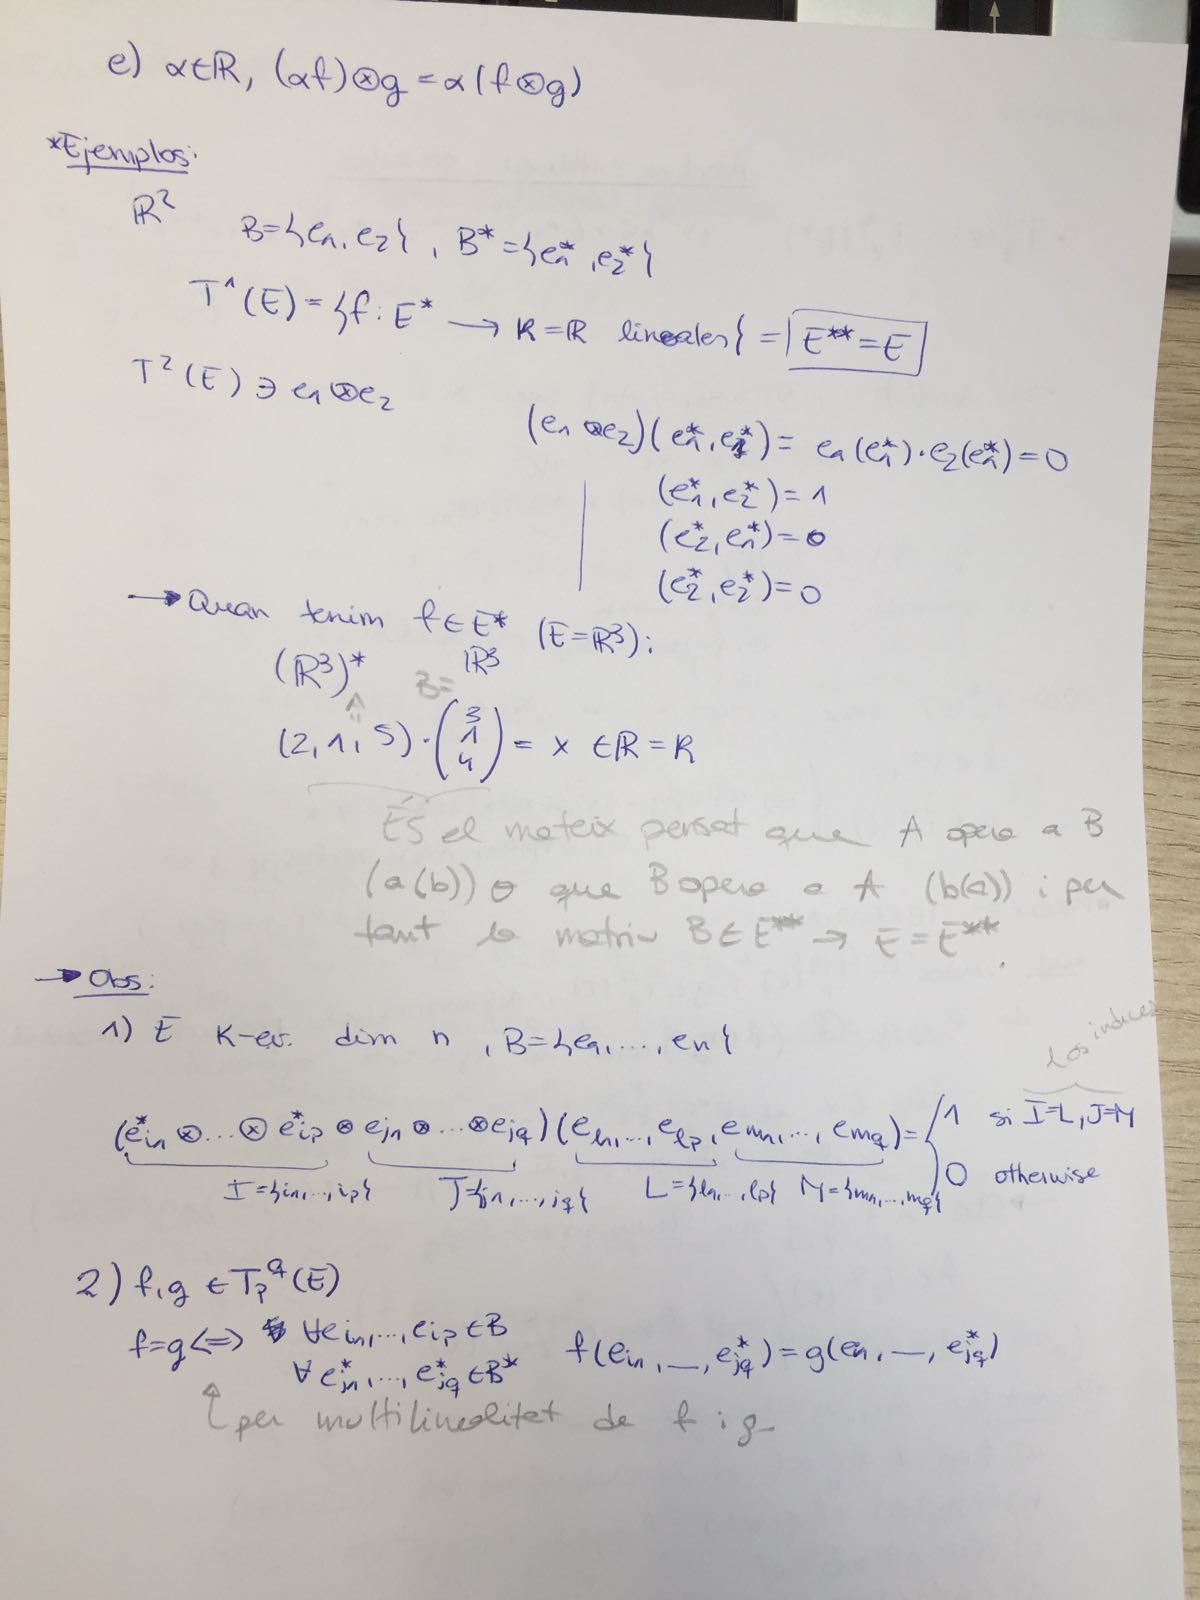 e) α∈ℝ, (αf)⊗g = α(f⊗g)
*Ejemplos:
ℝ² B={e₁, e₂}, B*={e₁*, e₂*}
T¹(E) = {f: E* → K=ℝ lineales} = E**=E
T²(E) ∋ e₁⊗e₂
(e₁⊗e₂)(e₁*, e₁*) = e₁(e₁*)·e₂(e₁*) = 0
(e₁*, e₂*) = 1
(e₂*, e₁*) = 0
(e₂*, e₂*) = 0
→ Quan tenim f∈E* (E=ℝ³):
(ℝ³)* ℝ³
B=
(2, 1, 5)·(3 1 4) = x ∈ℝ = K
És el mateix pensat que A opera a B
(a(b)) o que B opera a A (b(a)) i per
tant la matriu B∈E** → E=E**.
→ Obs:
1) E K-ev. dim n, B={e₁, ..., eₙ}
Los indices
(e*ᵢ₁ ⊗...⊗ e*ᵢₚ ⊗ eⱼ₁ ⊗...⊗ e_jq)(e_l₁, ..., e_lp, e_m₁, ..., e_mq) = { 1 si I=L, J=M
0 otherwise
I={i₁, ..., iₚ} J={j₁, ..., j_q} L={l₁, ..., lₚ} M={m₁, ..., m_q}
2) f, g ∈ Tₚ^q(E)
f=g ⟺ ∀eᵢ₁, ..., eᵢₚ ∈B f(eᵢ₁, —, e*_jq) = g(e₁, —, e*_jq)
∀ e*ⱼ₁, ..., e*_jq ∈B*
↑ per multilinealitat de f i g